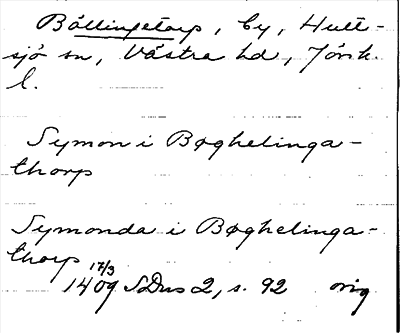 Bällingetorp, by, Hult-
sjö sn, Västra hd, Jönk.
l.
Symon i Bøghelinga-
thorp
Symonda i Bøghelinga-
thorp
17/3
1409 SDns 2, s. 92 orig